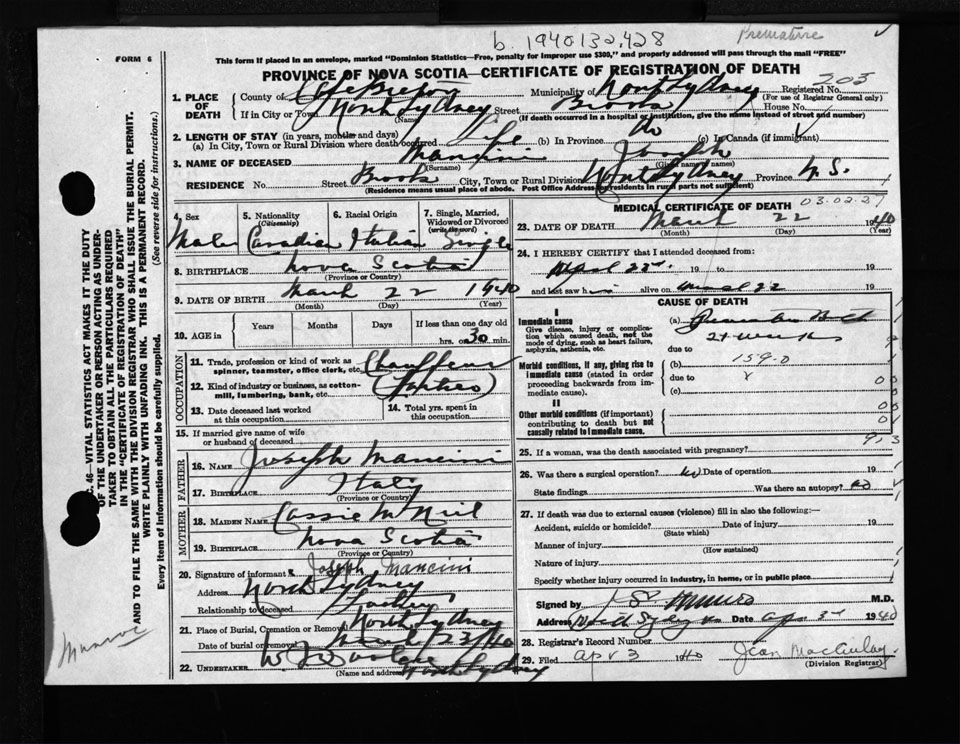 b. 1940132,428
Premature
FORM 6
This form if placed in an envelope, marked "Dominion Statistics—Free, penalty for improper use $300," and properly addressed will pass through the mail "FREE"
PROVINCE OF NOVA SCOTIA—CERTIFICATE OF REGISTRATION OF DEATH
203
1. PLACE OF DEATH County of Cape Breton Municipality of North Sydney Registered No.
(For use of Registrar General only)
If in City or Town North Sydney Street Brook House No.
(Name) (If death occurred in a hospital or institution, give the name instead of street and number)
2. LENGTH OF STAY (in years, months and days)
(a) In City, Town or Rural Division where death occurred life (b) In Province do (c) In Canada (if immigrant)
3. NAME OF DECEASED Mancini Joseph
(Surname) (Given name or names)
RESIDENCE No. Street Brook City, Town or Rural Division North Sydney Province N.S.
(Residence means usual place of abode. Post Office Address of residents in rural parts not sufficient)
4. Sex 5. Nationality (Citizenship) 6. Racial Origin 7. Single, Married, Widowed or Divorced (write the word)
Male Canadian Italian Single
8. BIRTHPLACE Nova Scotia
(Province or Country)
9. DATE OF BIRTH March 22 1940
(Month) (Day) (Year)
10. AGE in Years Months Days If less than one day old
hrs. or 30 min.
OCCUPATION
11. Trade, profession or kind of work as spinner, teamster, office clerk, etc. Chauffeur
12. Kind of industry or business, as cotton-mill, lumbering, bank, etc. (Father)
13. Date deceased last worked at this occupation 14. Total yrs. spent in this occupation
15. If married give name of wife or husband of deceased
FATHER
16. NAME Joseph Mancini
17. BIRTHPLACE Italy
(Province or Country)
MOTHER
18. MAIDEN NAME Cassie McNeil
19. BIRTHPLACE Nova Scotia
(Province or Country)
20. Signature of informant Joseph Mancini
Address North Sydney
Relationship to deceased Father
21. Place of Burial, Cremation or Removal North Sydney
Date of burial or removal March 23/40
22. UNDERTAKER W J
(Name and address) North Sydney
MEDICAL CERTIFICATE OF DEATH
03.02.27
23. DATE OF DEATH March 22 1940
(Month) (Day) (Year)
24. I HEREBY CERTIFY that I attended deceased from:
22nd 19 to 19
and last saw h alive on March 22 19
CAUSE OF DEATH
I
Immediate cause
Give disease, injury or complication which caused death, not the mode of dying, such as heart failure, asphyxia, asthenia, etc.
(a) Premature Birth
weeks
due to
Morbid conditions, if any, giving rise to immediate cause (stated in order proceeding backwards from immediate cause).
(b) 159-0
due to
(c)
II
Other morbid conditions (if important) contributing to death but not causally related to immediate cause.
25. If a woman, was the death associated with pregnancy?
26. Was there a surgical operation? no Date of operation 19
State findings Was there an autopsy? no
27. If death was due to external causes (violence) fill in also the following:—
Accident, suicide or homicide? Date of injury 19
(State which)
Manner of injury
(How sustained)
Nature of injury
Specify whether injury occurred in industry, in home, or in public place
Signed by Munro M.D.
Address North Sydney Date Apr 3rd 1940
28. Registrar's Record Number
29. Filed Apr 3 1940 Jean MacAulay
(Division Registrar)
C. 46—VITAL STATISTICS ACT MAKES IT THE DUTY
OF THE UNDERTAKER OR PERSON ACTING AS UNDER-
TAKER TO OBTAIN ALL THE PARTICULARS REQUIRED
IN THE "CERTIFICATE OF REGISTRATION OF DEATH"
AND TO FILE THE SAME WITH THE DIVISION REGISTRAR WHO SHALL ISSUE THE BURIAL PERMIT.
WRITE PLAINLY WITH UNFADING INK. THIS IS A PERMANENT RECORD.
Every item of Information should be carefully supplied. (See reverse side for instructions.)
Munroe